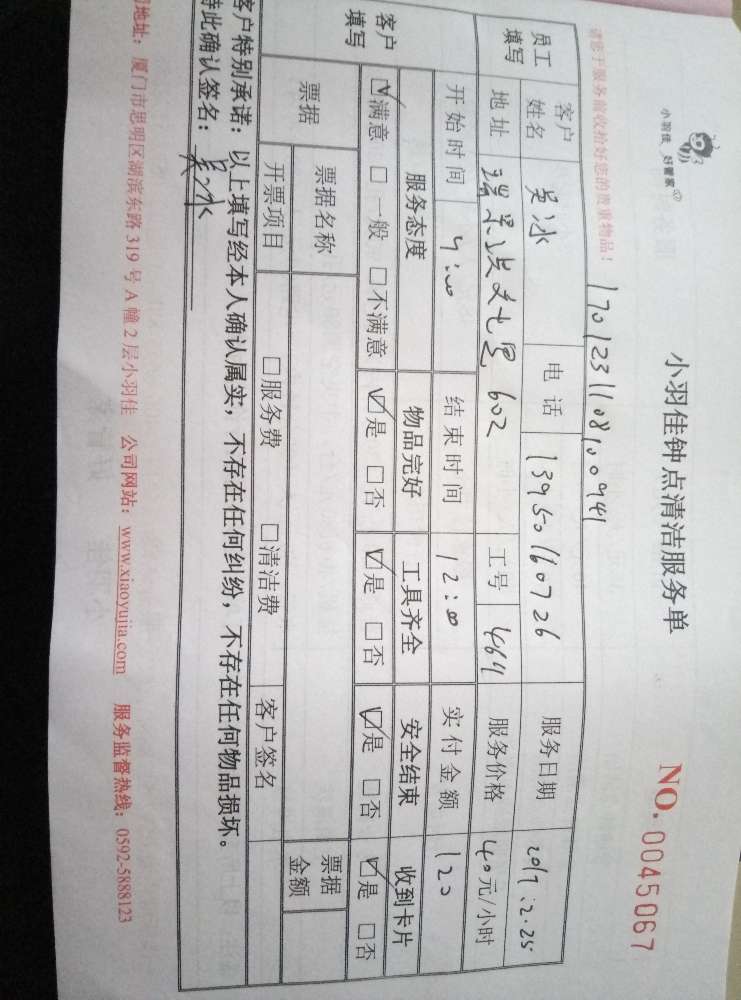 小羽佳 好管家
小羽佳钟点清洁服务单
NO. 0045067
请您于服务前收拾好您的贵重物品！
1701231108100941
员工填写 客户姓名 吴冰 电话 13950160726 服务日期 2017.2.25
地址 602 工号 464 服务价格 40元/小时
开始时间 9:00 结束时间 12:00 实付金额 120
客户填写 服务态度 物品完好 工具齐全 安全结束 收到卡片
☑满意 □一般 □不满意 ☑是 □否 ☑是 □否 ☑是 □否 ☑是 □否
票据 票据名称 票据金额
开票项目 □服务费 □清洁费 客户签名
客户特别承诺：以上填写经本人确认属实，不存在任何纠纷，不存在任何物品损坏。
特此确认签名：吴冰
地址：厦门市思明区湖滨东路319号A幢2层小羽佳 公司网站：www.xiaoyujia.com 服务监督热线：0592-5888123